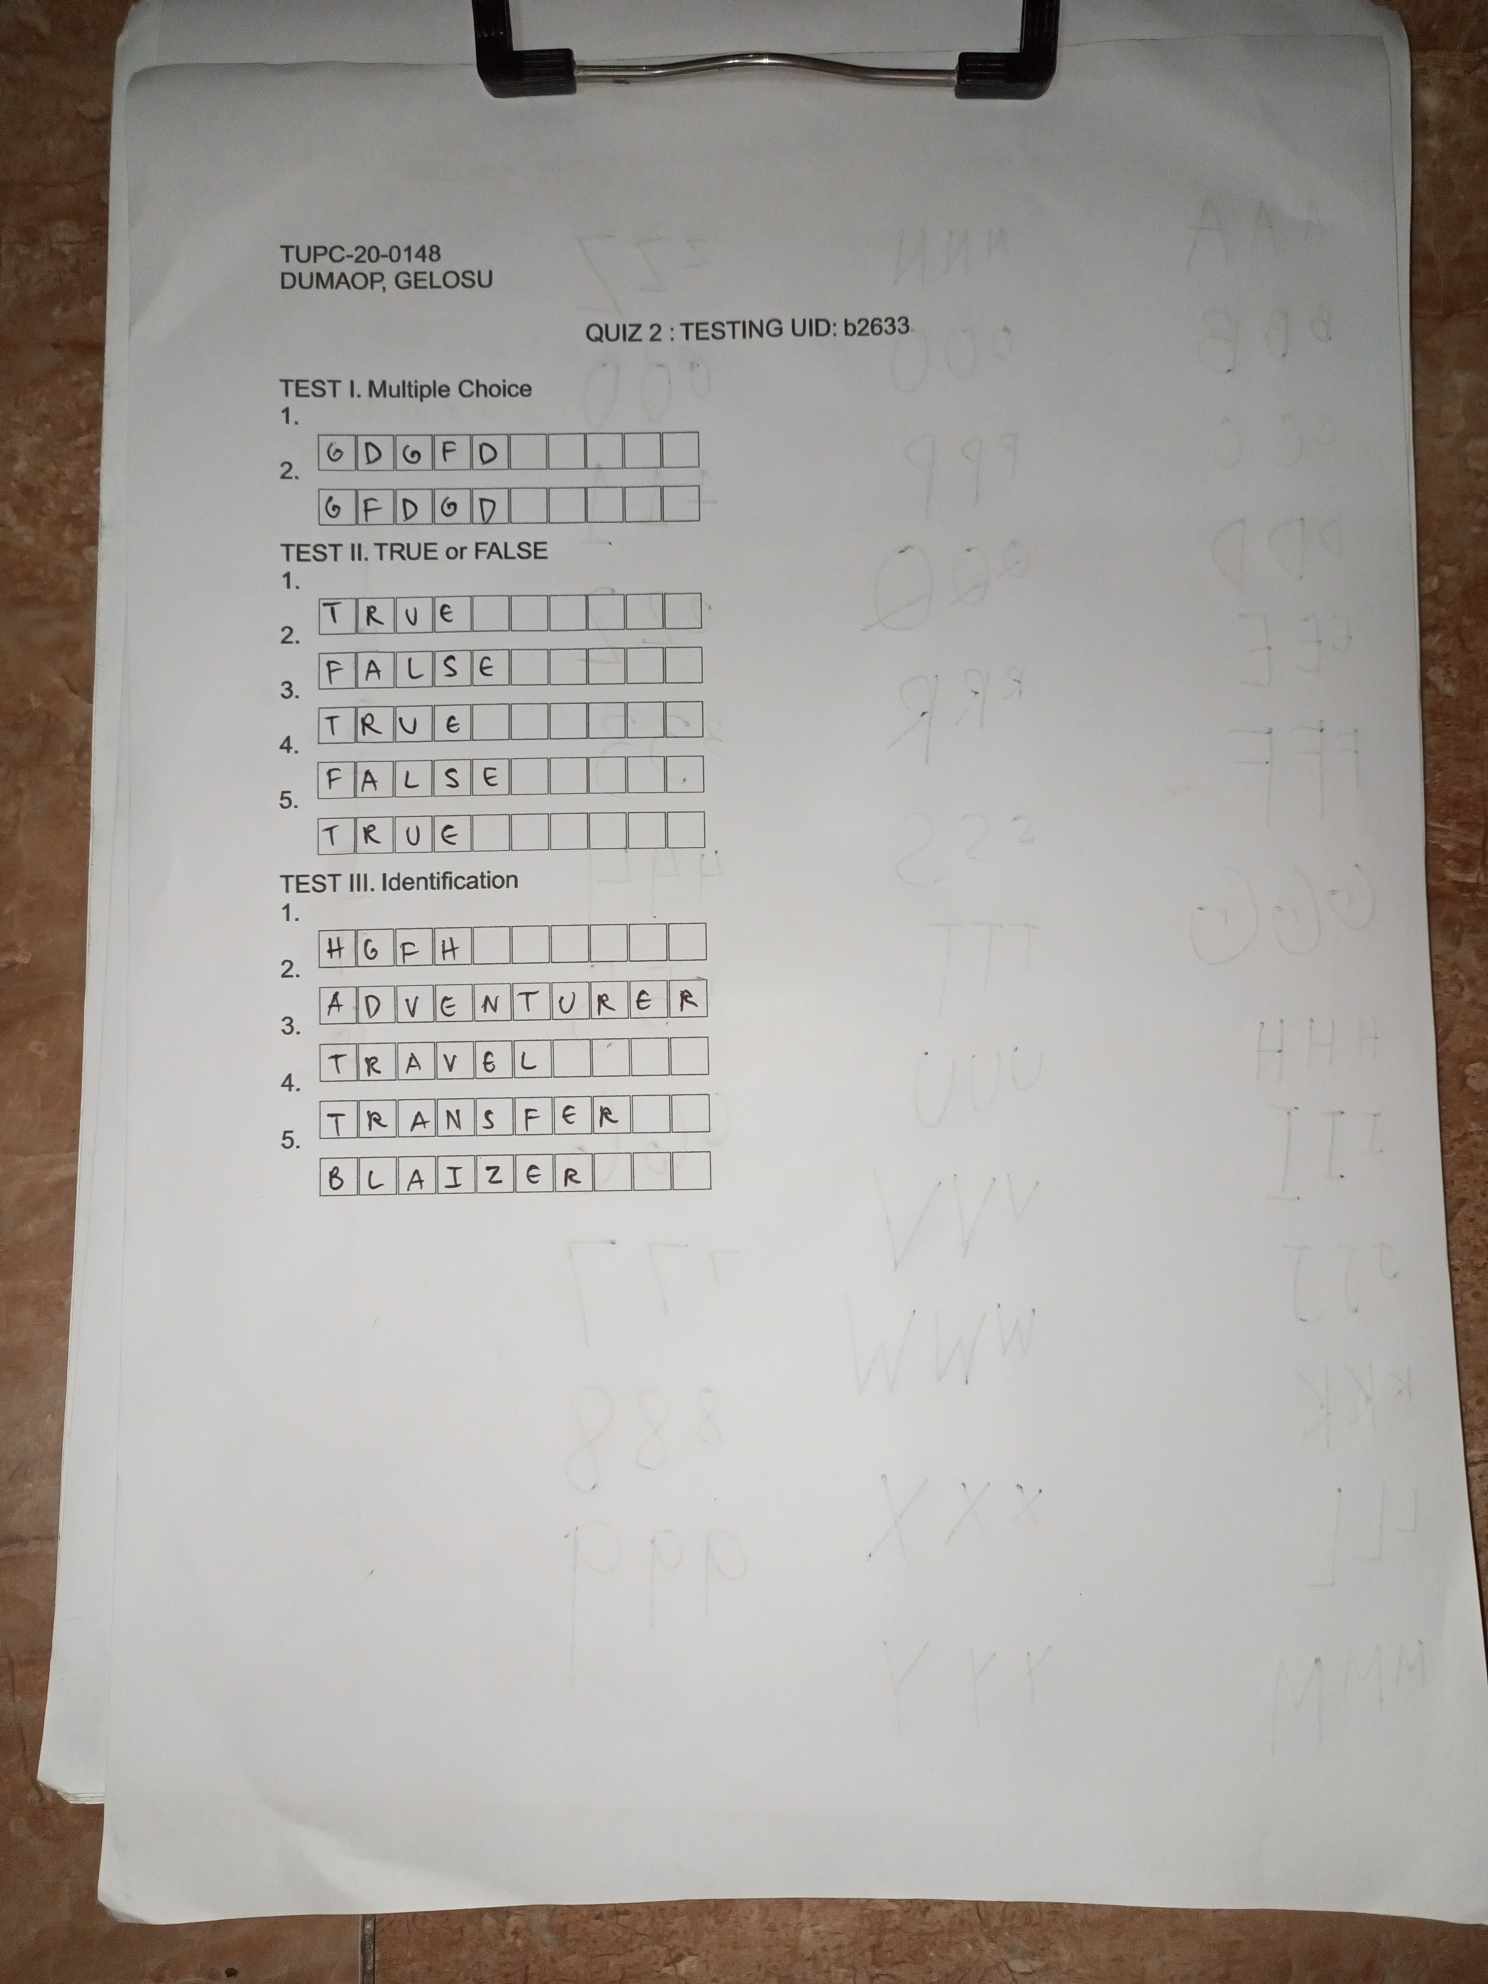 TUPC-20-0148
DUMAOP, GELOSU
QUIZ 2 : TESTING UID: b2633
TEST I. Multiple Choice
1.
GDGFD
2.
GFDGD
TEST II. TRUE or FALSE
1.
TRUE
2.
FALSE
3.
TRUE
4.
FALSE
5.
TRUE
TEST III. Identification
1.
HGFH
2.
ADVENTURER
3.
TRAVEL
4.
TRANSFER
5.
BLAIZER